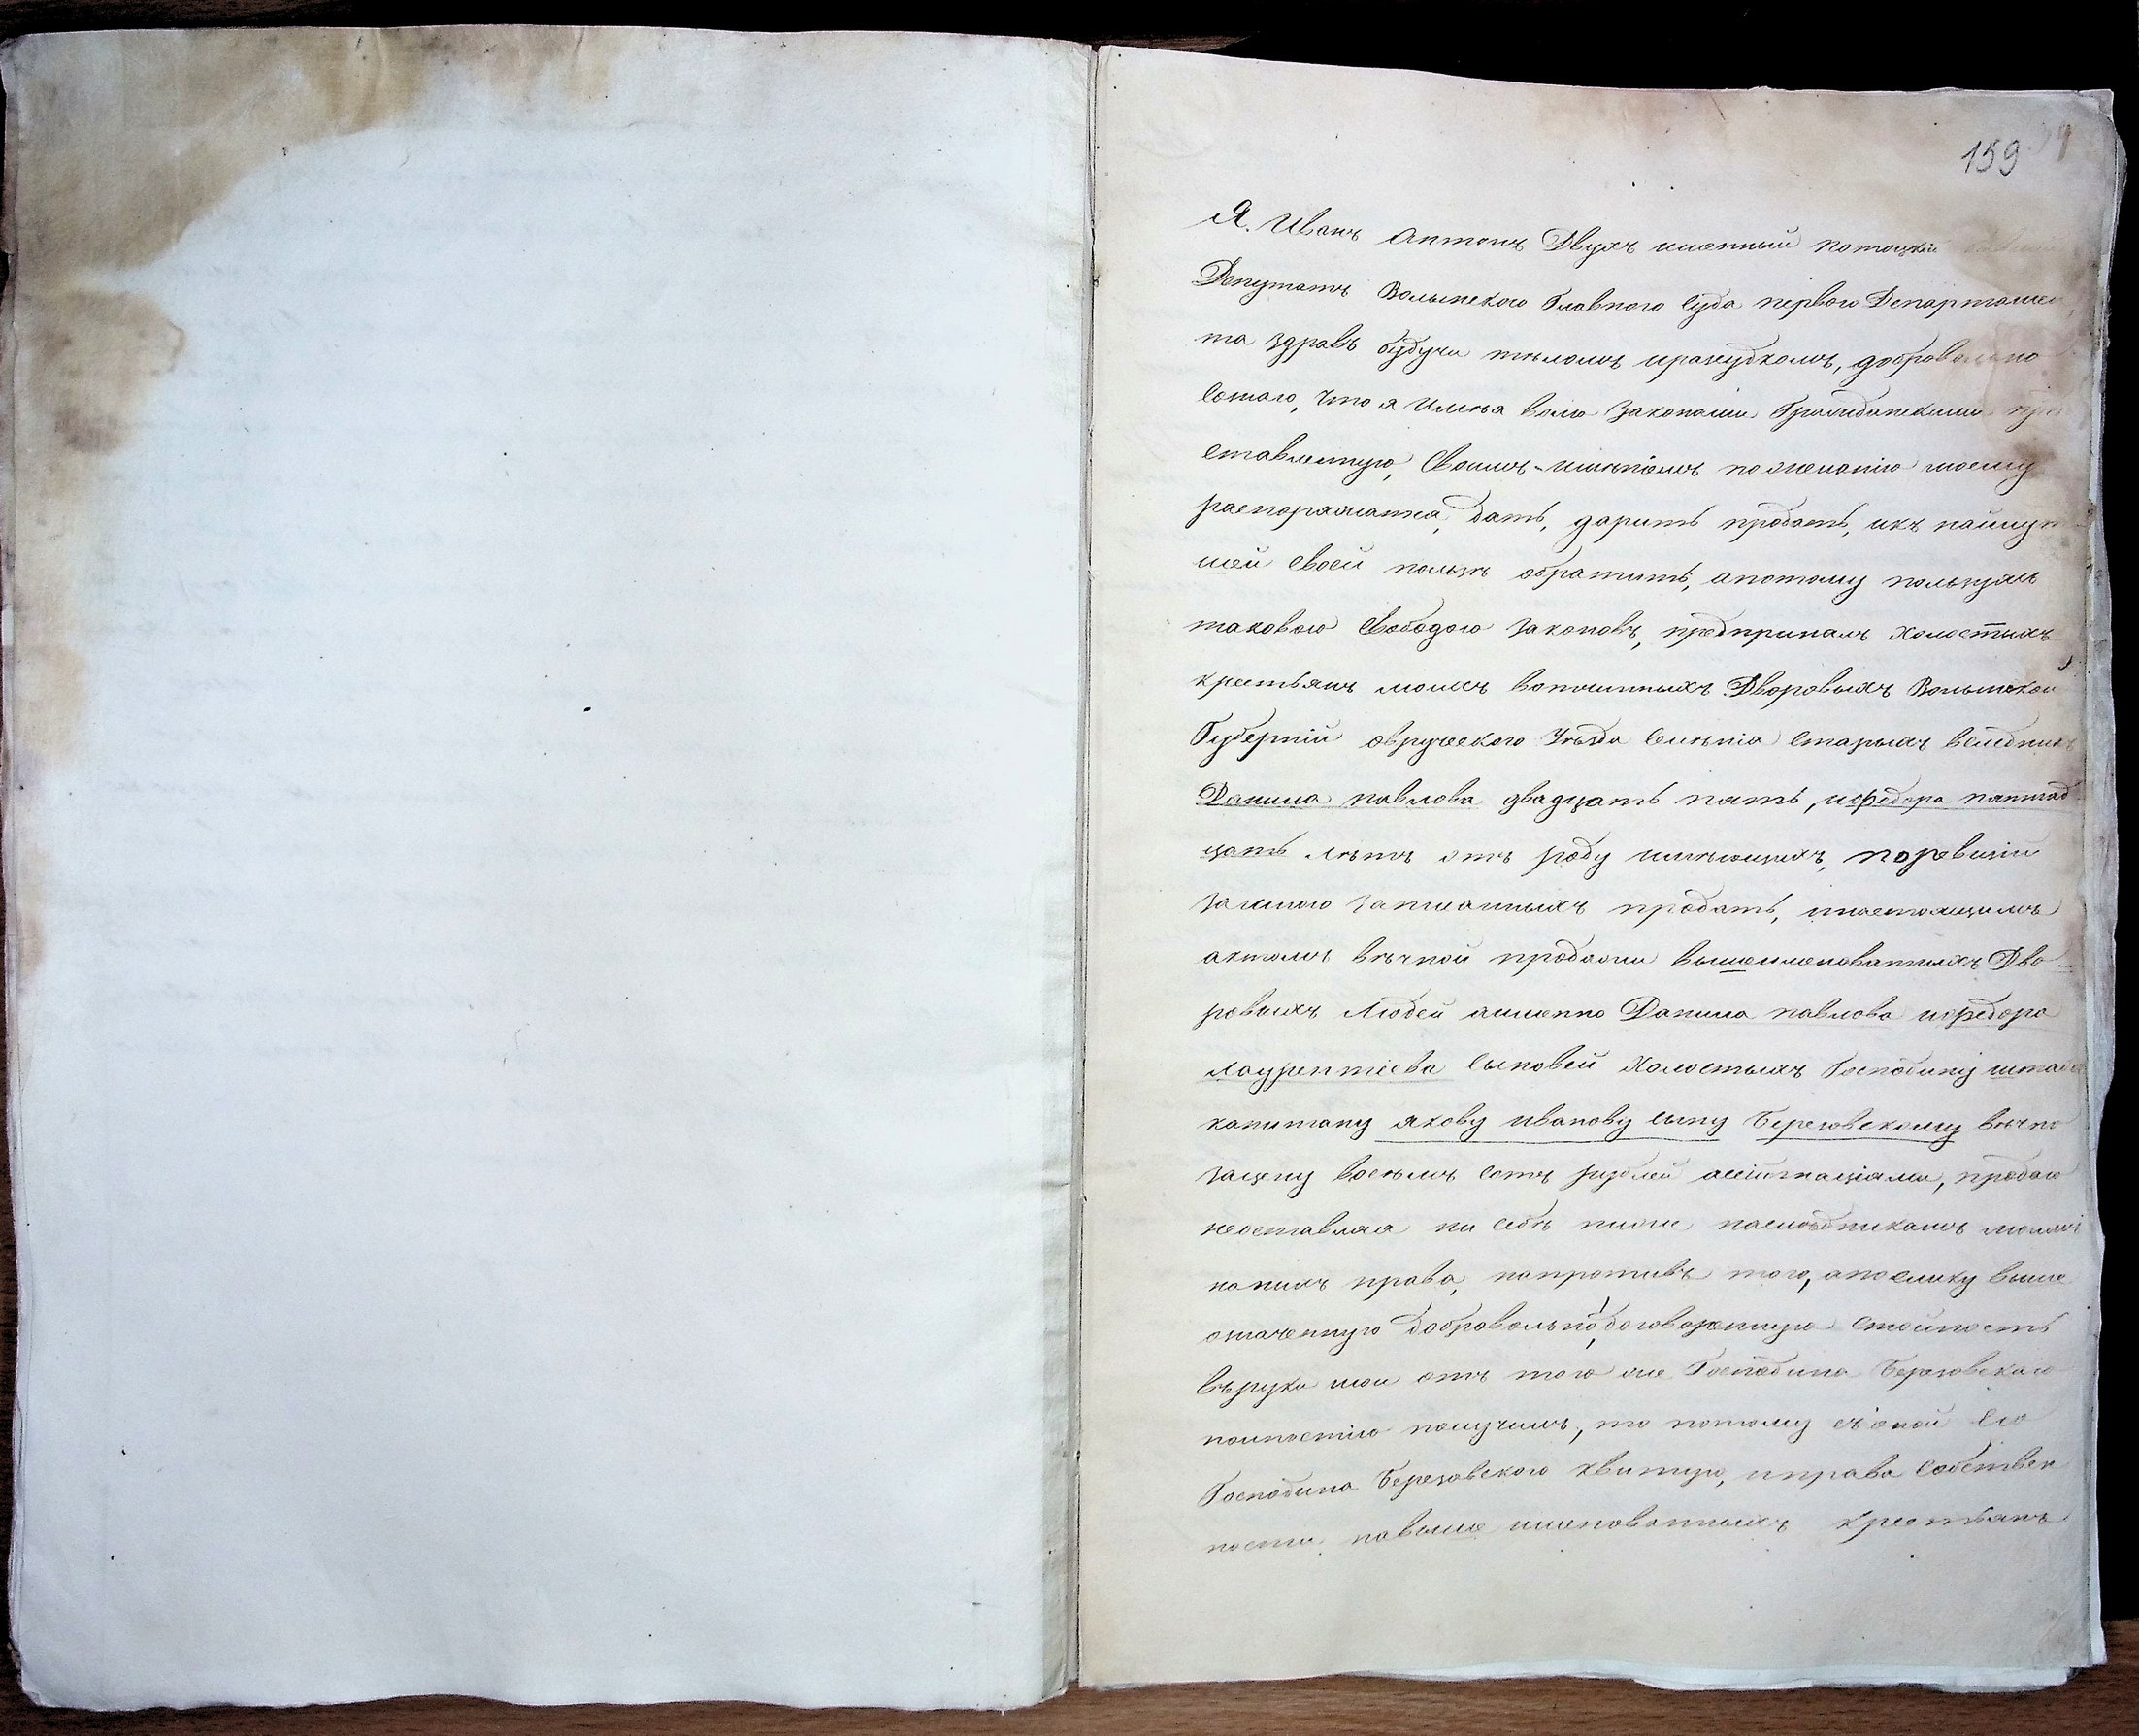 159
Я. Иванъ Антонъ Двухъ именный потоцкій
Депутатъ Волынского Главного Суда первого Департамен
та здравъ будучи тѣломъ иразсудкомъ, добровольно
Сознаю, что я Имѣя волю Законами Гражданскими пре
ставленную, Своимъ имѣніемъ пожеланію моему
распоряжатся, дать, дарить продать, икъ наилуч
шей своей пользѣ обратить, апотому пользуясь
таковою Свободою Законовъ, предпринялъ Холостыхъ
крестьянъ моихъ вотчинныхъ Дворовыхъ Волынской
Губерніи овручского Уѣзда Селенія Старыхъ велѣдникъ
Данила павлова двадцать пять, иФедора пятнад
цать лѣтъ отъ роду имѣющихъ, поревизіи
Замною Записанныхъ продать, инастоящимъ
актомъ вѣчной продажи вышеименованныхъ Дво-
ровыхъ Людей аименно Данила павлова иФедора
лаурентіева Сыновей Холостыхъ Господину штабсъ
капитану якову иванову сыну Березовскому вѣчно
зацену восѣмъ сотъ рублей ассигнаціами, продаю
неоставляя ни себѣ ниже наслѣдникамъ моимъ
наних права, напротивъ того, апоелику выше
означенную добровольно, договоренную Стоимость
въруки мои отъ того же Господина Березовского
полностію получилъ, то потому съоной Его
Господина Березовского квитую, иправа собствен
ности навыше именованныхъ крестьянъ